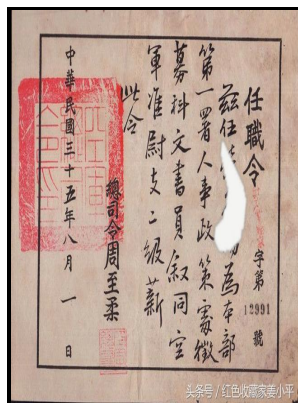 任職令
字第12991號
茲任
為本部
第一署人事政策處徵
募科文書員敘同空
軍准尉支二級薪
此令
總司令周至柔
中華民國三十五年八月一日
头条号／红色收藏家姜小平